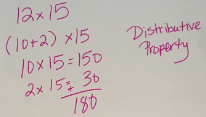 12x15
(10+2) x15
10x15=150
2x15=+30
180
Distributive
Property